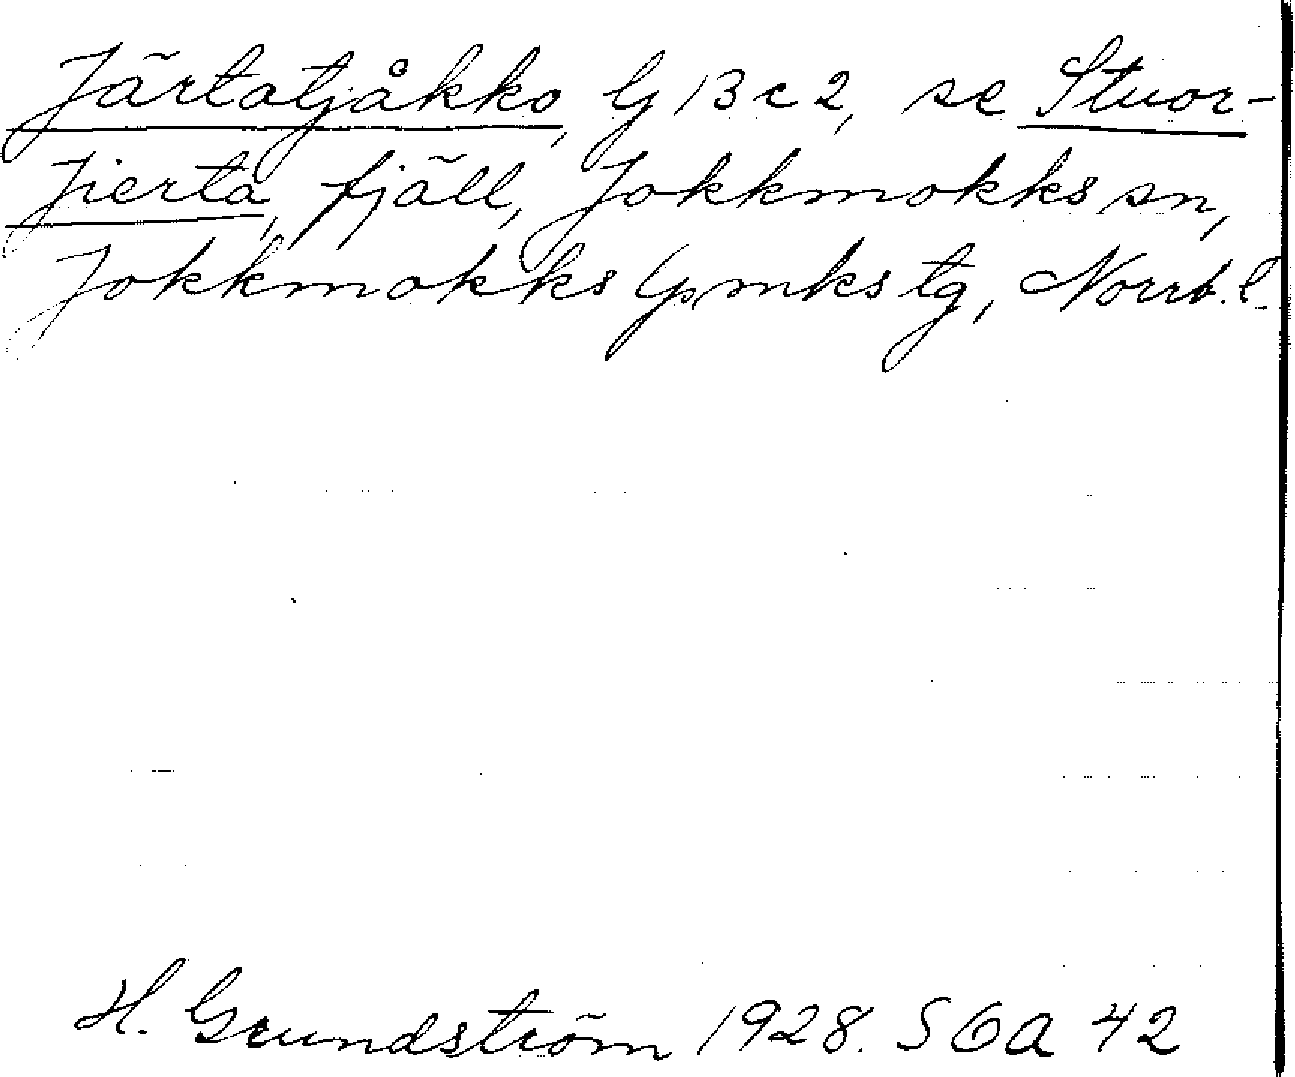 Järtatjåkko, G 13 c 2, se Stuor-
jierta, fjäll, Jokkmokks sn,
Jokkmokks lpmks tg, Norrb. l.
H. Grundström 1928. SOA 42